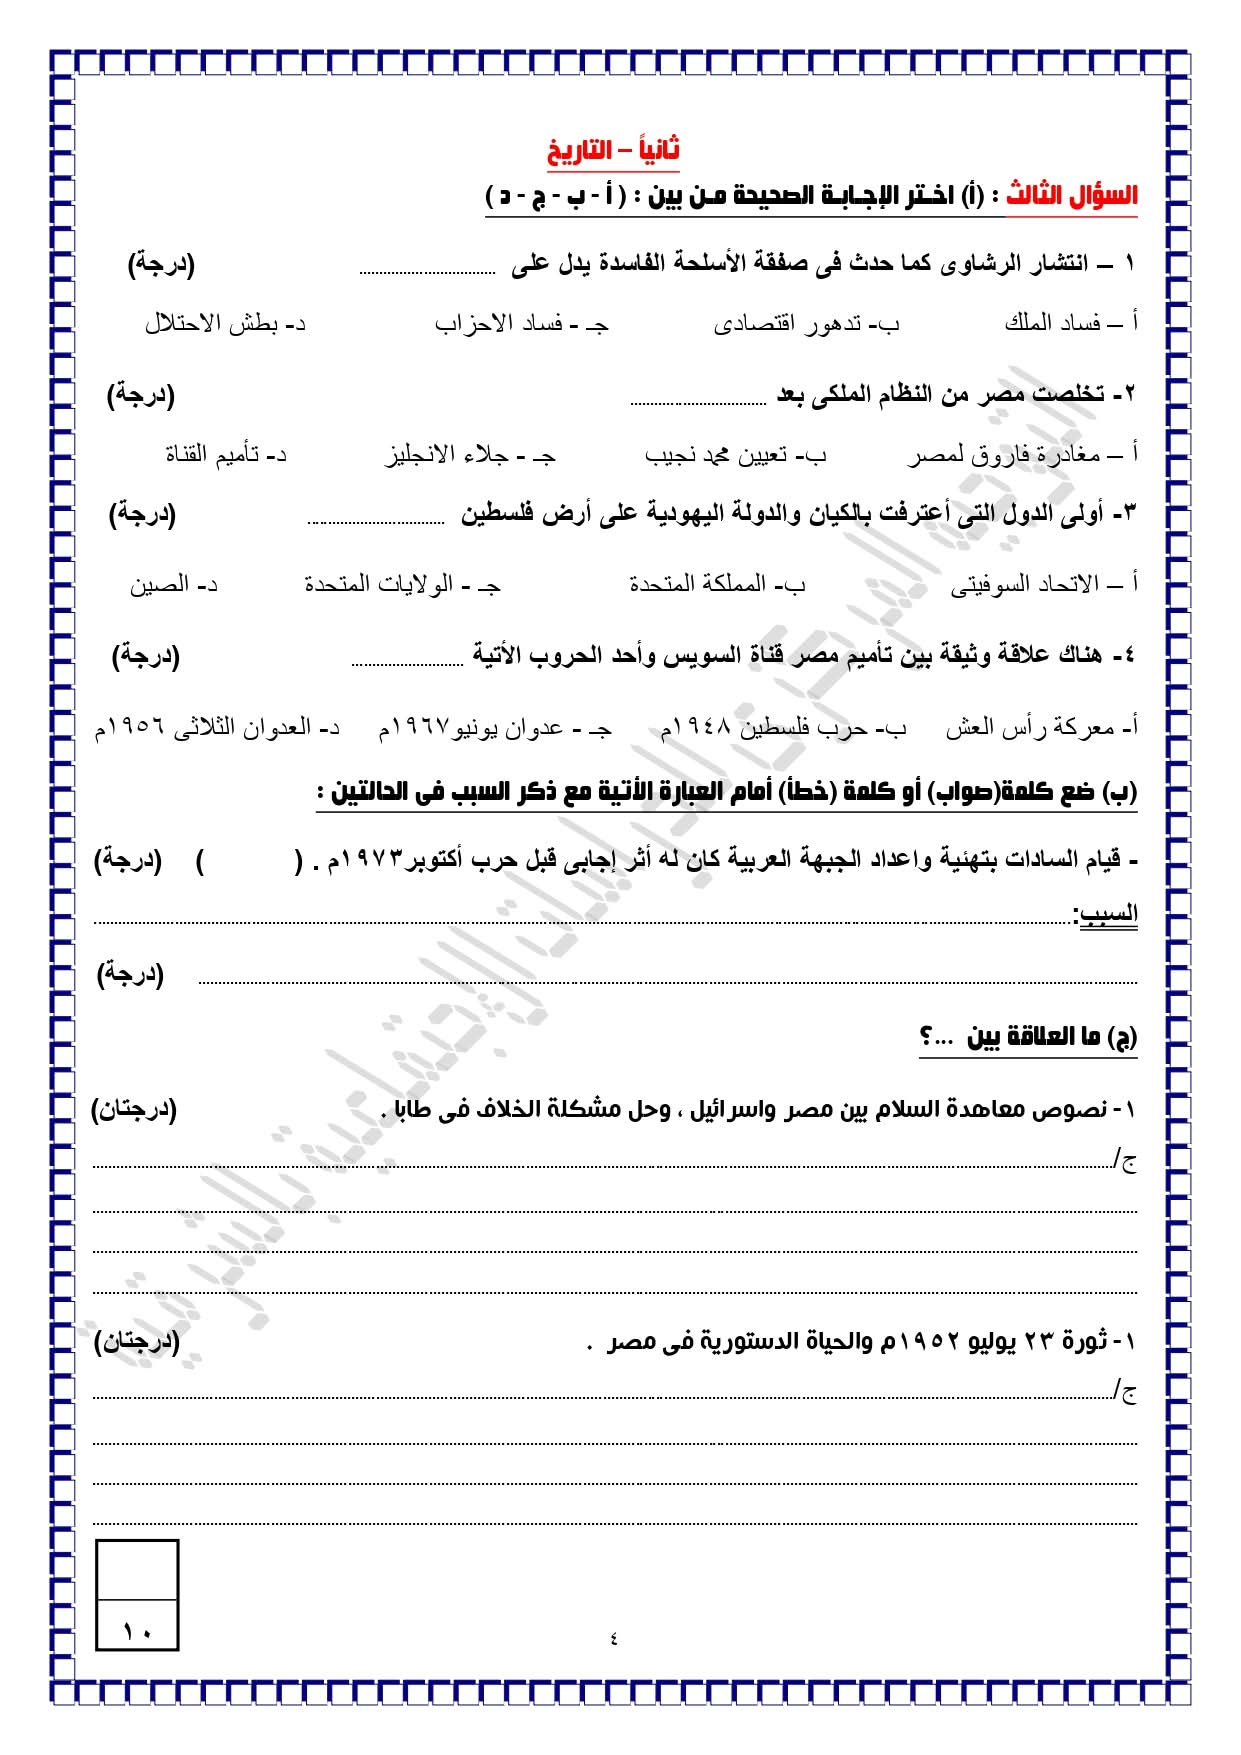 ثانياً – التاريخ
السؤال الثالث : (أ) اختر الإجابة الصحيحة من بين : ( أ - ب - ج - د )
١ – انتشار الرشاوى كما حدث فى صفقة الأسلحة الفاسدة يدل على ............................ (درجة)
أ – فساد الملك ب- تدهور اقتصادى جـ - فساد الاحزاب د- بطش الاحتلال
٢- تخلصت مصر من النظام الملكى بعد ............................ (درجة)
أ – مغادرة فاروق لمصر ب- تعيين محمد نجيب جـ - جلاء الانجليز د- تأميم القناة
٣- أولى الدول التى أعترفت بالكيان والدولة اليهودية على أرض فلسطين ............................ (درجة)
أ – الاتحاد السوفيتى ب- المملكة المتحدة جـ - الولايات المتحدة د- الصين
٤- هناك علاقة وثيقة بين تأميم مصر قناة السويس وأحد الحروب الأتية ....................... (درجة)
أ- معركة رأس العش ب- حرب فلسطين ١٩٤٨م جـ - عدوان يونيو١٩٦٧م د- العدوان الثلاثى ١٩٥٦م
(ب) ضع كلمة(صواب) أو كلمة (خطأ) أمام العبارة الأتية مع ذكر السبب فى الحالتين :
- قيام السادات بتهئية واعداد الجبهة العربية كان له أثر إجابى قبل حرب أكتوبر١٩٧٣م . ( ) (درجة)
السبب:................................................................
................................................................ (درجة)
(ج) ما العلاقة بين ...؟
١- نصوص معاهدة السلام بين مصر واسرائيل ، وحل مشكلة الخلاف فى طابا . (درجتان)
ج/................................................................
................................................................
................................................................
................................................................
١- ثورة ٢٣ يوليو ١٩٥٢م والحياة الدستورية فى مصر . (درجتان)
ج/................................................................
................................................................
................................................................
................................................................
١٠
٤
التوجيه المركزى للدراسات الإجتماعية بالشرقية